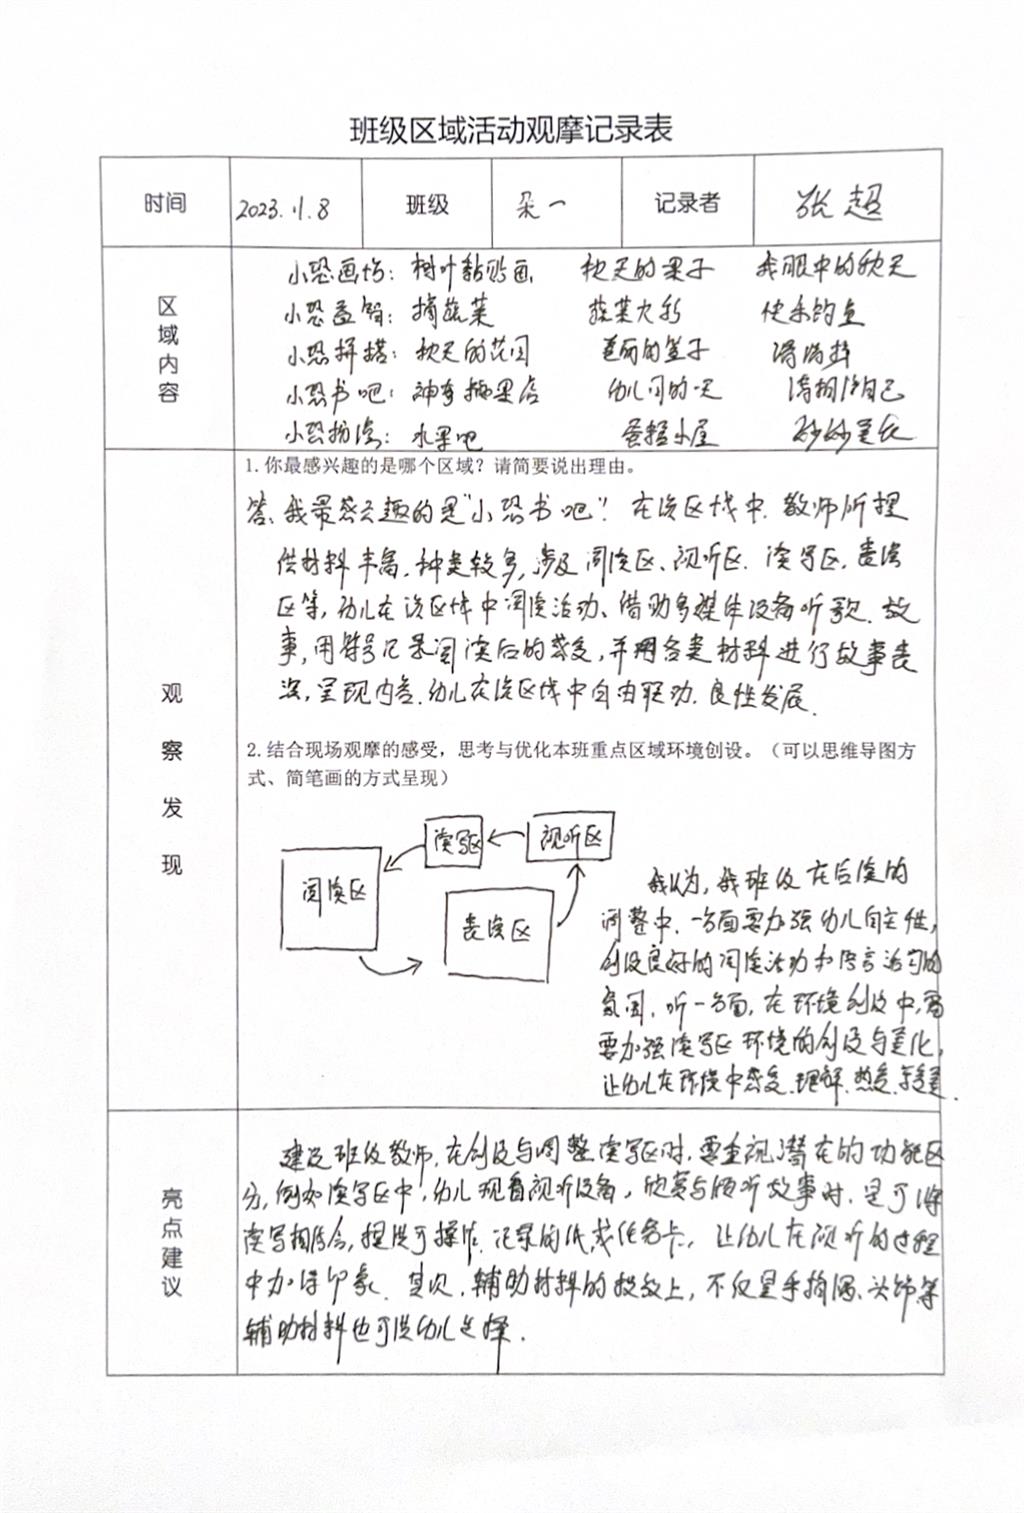 班级区域活动观摩记录表
时间 2023.11.8 班级 朵一 记录者 张超
区域内容
小恐画坊：树叶黏贴画 秋天的果子 我眼中的秋天
小恐益智：摘蔬菜 蔬菜 快乐钓鱼
小恐拼搭：秋天的花园 美丽的盒子
小恐书吧：神奇糖果店 幼儿园的一天 请相信自己
小恐扮演：水果吧 蛋糕小屋 妙妙美衣
观察发现
1. 你最感兴趣的是哪个区域？请简要说出理由。
答：我最感兴趣的是“小恐书吧”！在该区域中，教师所提
供材料丰富，种类较多，涉及阅读区、视听区、读写区，表演
区等，幼儿在该区域中阅读活动、借助多媒体设备听歌、故
事，用符号记录阅读后的感受，并用各类材料进行故事表
演，呈现内容。幼儿在该区域中自由联动，良性发展。
2. 结合现场观摩的感受，思考与优化本班重点区域环境创设。（可以思维导图方
式、简笔画的方式呈现）
阅读区
读写区
视听区
表演区
我认为，我班级在后续的
调整中，一方面要加强幼儿自主性，
创设良好的阅读活动和语言活动的
氛围，听一方面，在环境创设中，需
要加强读写区环境的创设与美化，
让幼儿在环境中感受、理解、热爱、
亮点建议
建议班级教师，在创设与调整读写区时，要重视潜在的功能区
分，例如读写区中，幼儿观看视听设备，欣赏与倾听故事时，是可将
读写相结合，提供可操作、记录的纸或任务卡，让幼儿在倾听的过程
中加深印象。其次，辅助材料的投放上，不仅是手指偶、头饰等
辅助材料也可供幼儿选择。